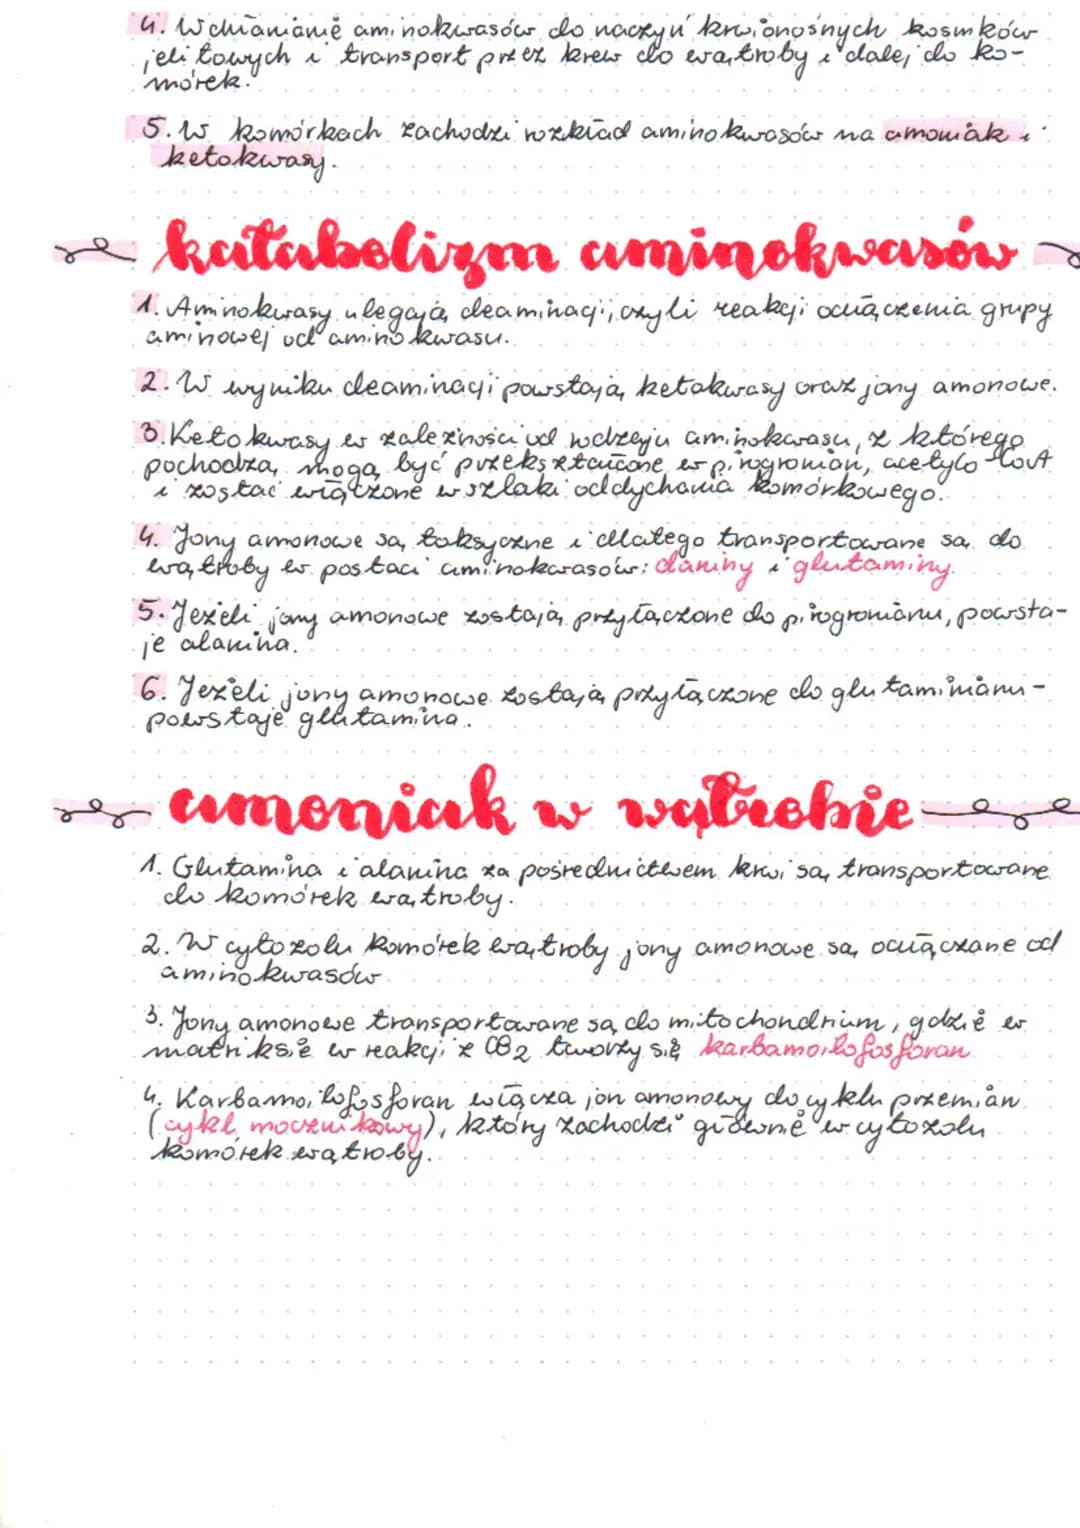 4. Wchłanianie aminokwasów do naczyń krwionośnych kosmków
jelitowych i transport przez krew do wątroby i dalej do ko-
mórek.
5. W komórkach zachodzi rozkład aminokwasów na amoniak i
ketokwasy.
katabolizm aminokwasów
1. Aminokwasy ulegają deaminacji, czyli reakcji odłączenia grupy
aminowej od aminokwasu.
2. W wyniku deaminacji powstają ketokwasy oraz jony amonowe.
3. Ketokwasy w zależności od rodzaju aminokwasu, z którego
pochodzą, mogą być przekształcone w pirogronian, acetylo-CoA
i zostać włączone w szlaki oddychania komórkowego.
4. Jony amonowe są toksyczne i dlatego transportowane są do
wątroby w postaci aminokwasów: alaniny i glutaminy.
5. Jeżeli jony amonowe zostają przyłączone do pirogronianu, powsta-
je alanina.
6. Jeżeli jony amonowe zostają przyłączone do glutaminianu -
powstaje glutamina.
amoniak w wątrobie
1. Glutamina i alanina za pośrednictwem krwi są transportowane
do komórek wątroby.
2. W cytozolu komórek wątroby jony amonowe są odłączane od
aminokwasów
3. Jony amonowe transportowane są do mitochondrium, gdzie w
matriksie w reakcji z CO2 tworzy się karbamoilofosforan
4. Karbamoilofosforan włącza jon amonowy do cyklu przemian
(cykl mocznikowy), który zachodzi głównie w cytozolu
komórek wątroby.